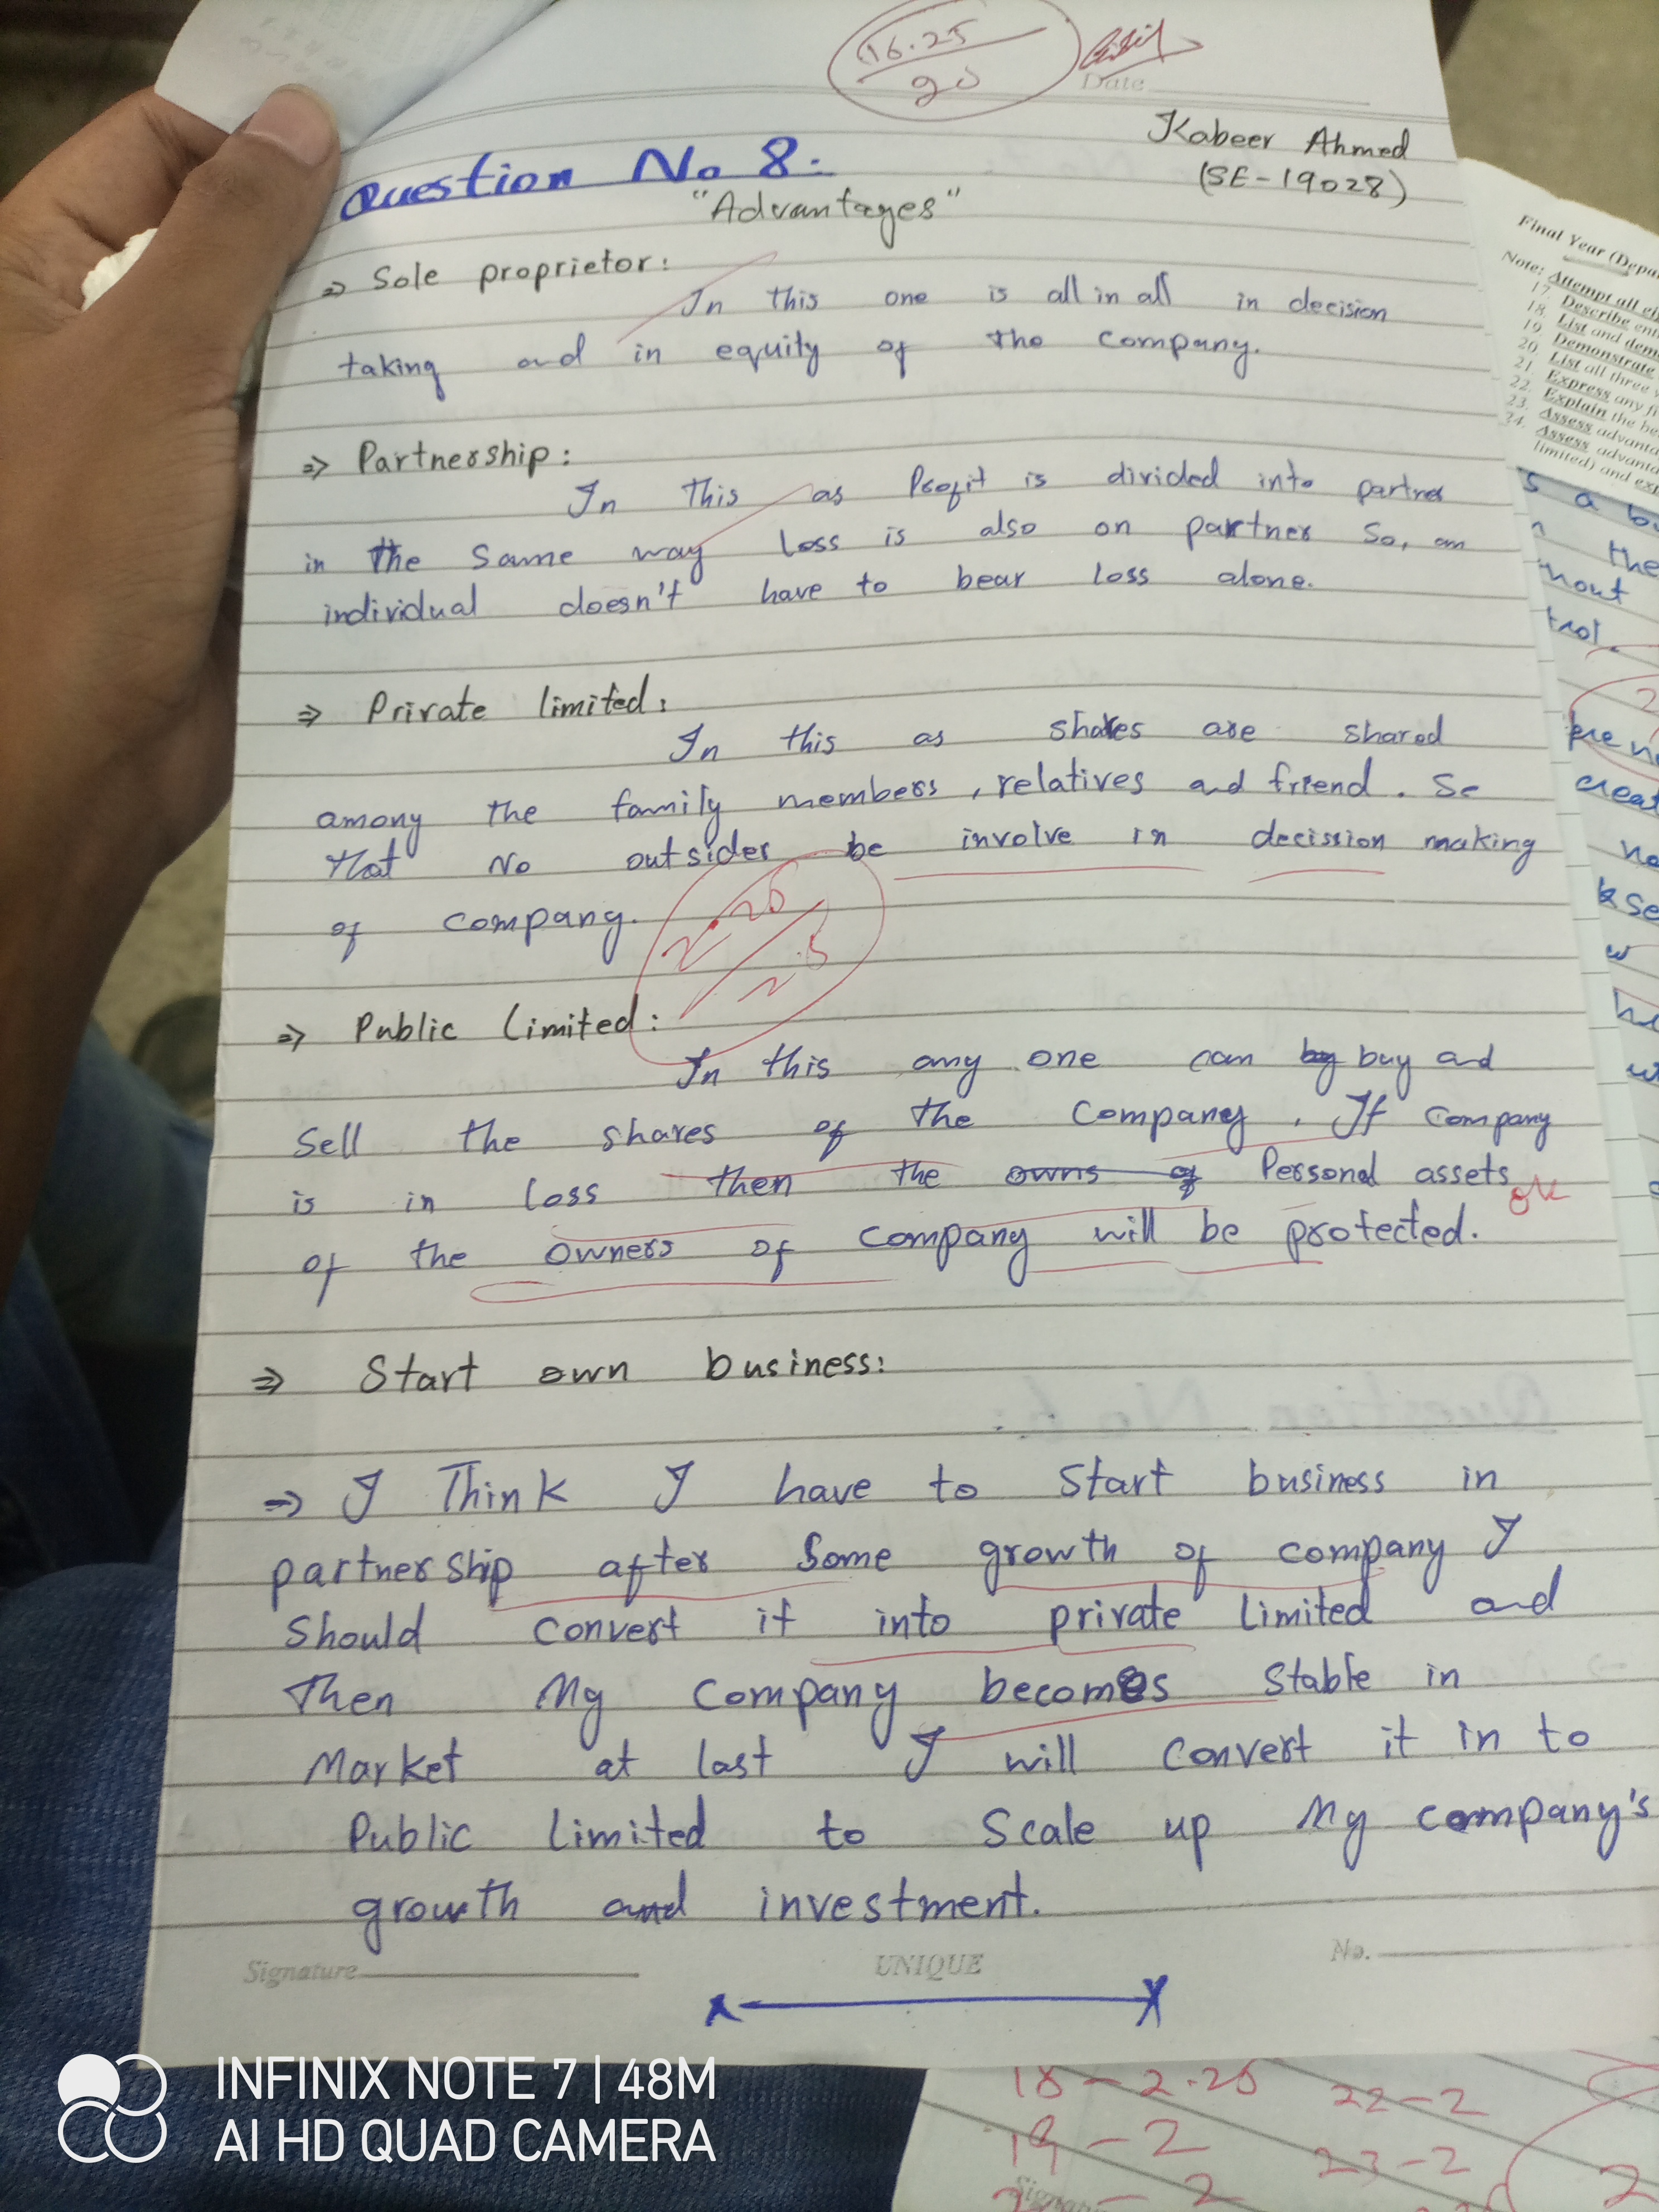 16.25
20
Date
Kabeer Ahmed
(SE-19028)
Question No 8:
"Advantages"
⇒ Sole proprietor:
In this one is all in all in decision
taking and in equity of the company.
⇒ Partnership:
In this as Profit is divided into partner
in the same way loss is also on partner so, an
individual doesn't have to bear loss alone.
⇒ Private limited:
In this as shares are shared
among the family members, relatives and friend. So
that No outsider be involve in decission making
of company.
2.25
2.5
⇒ Public Limited:
In this any one can by buy and
sell the shares of the company. If company
is in loss then the owns of Personal assets
ok
of the owners of company will be protected.
⇒ Start own business:
⇒ I Think I have to start business in
partnership after some growth of company I
should convert it into private limited and
Then My company becomes stable in
Market at last I will convert it in to
Public Limited to scale up My company's
growth and investment.
Signature
UNIQUE
No.
Final Year (Depa
Note: Attempt all ei
17. Describe ent
18. List and dem
19. Demonstrate
20. List all three
21. Express any fi
22. Explain the be
23. Assess advanta
24. Assess advanta
limited) and exp
s a bu
the
trol.
creat
18 - 2.25
22 - 2
19 - 2
23 - 2
- 2
2
Signatu
INFINIX NOTE 7 | 48M
AI HD QUAD CAMERA